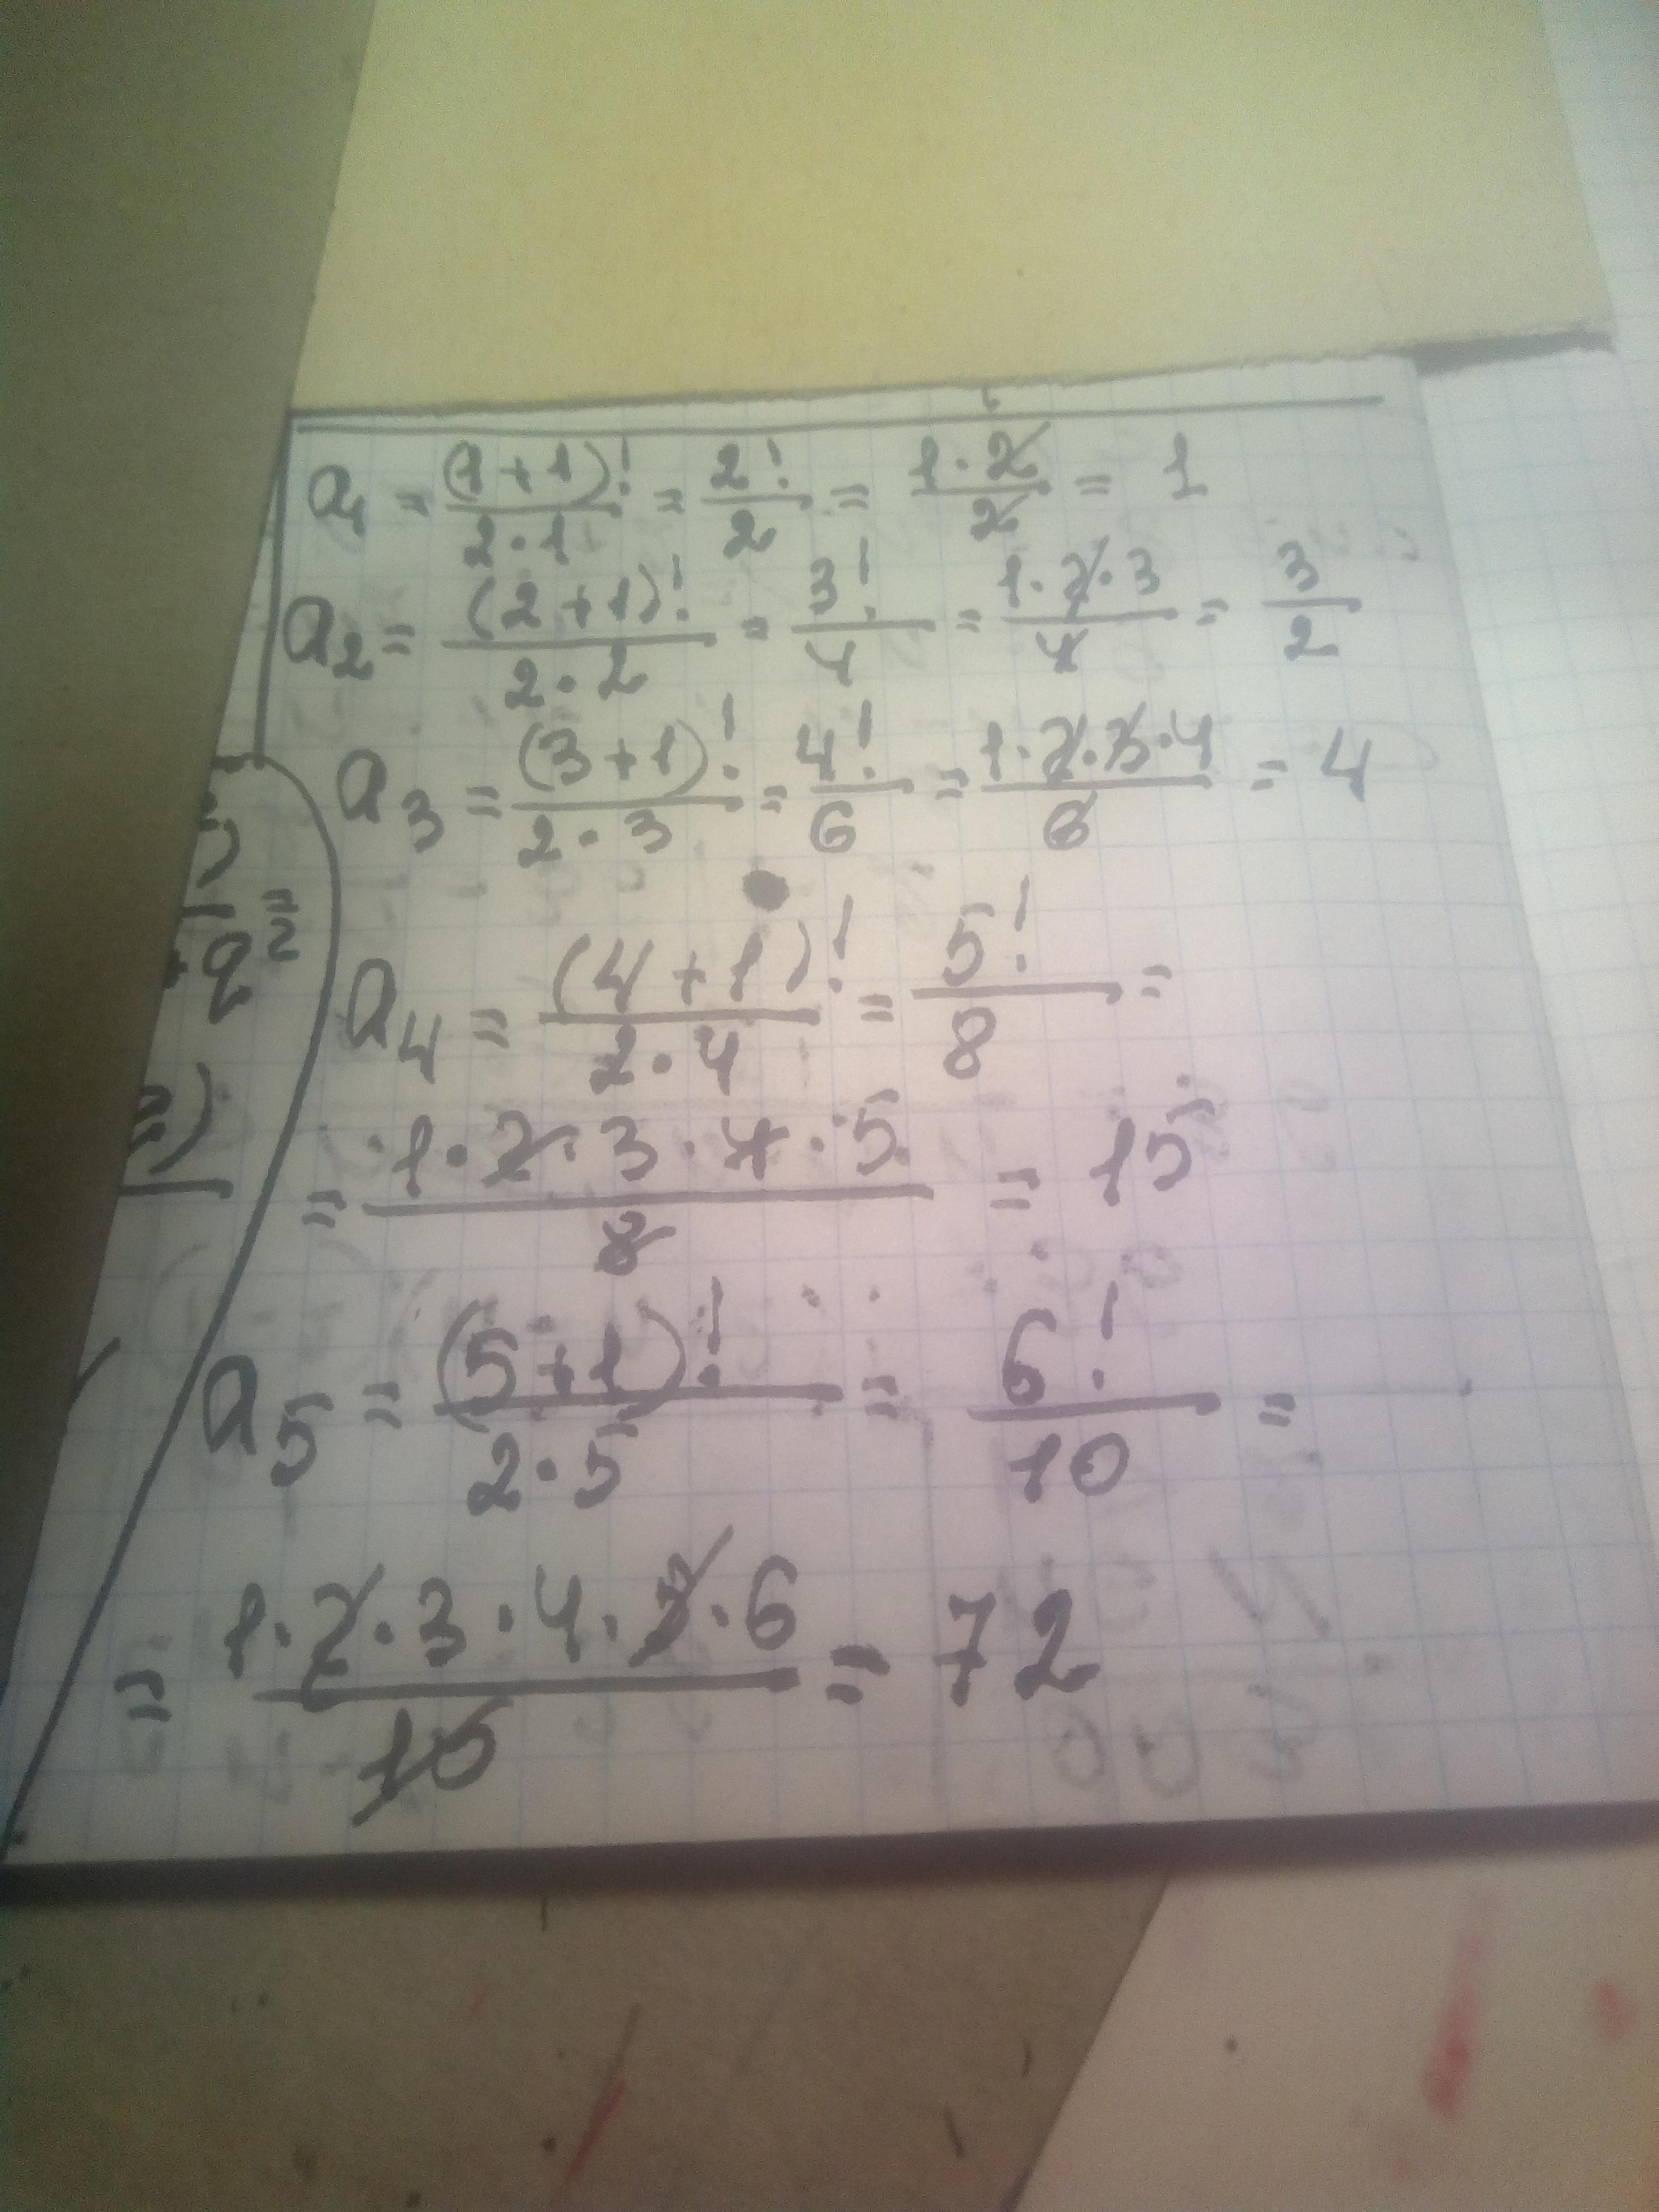 a₁ = (1+1)!/(2·1) = 2!/2 = (1·2)/2 = 1
a₂ = (2+1)!/(2·2) = 3!/4 = (1·2·3)/4 = 3/2
a₃ = (3+1)!/(2·3) = 4!/6 = (1·2·3·4)/6 = 4
a₄ = (4+1)!/(2·4) = 5!/8 =
= (1·2·3·4·5)/8 = 15
a₅ = (5+1)!/(2·5) = 6!/10 =
= (1·2·3·4·5·6)/10 = 72